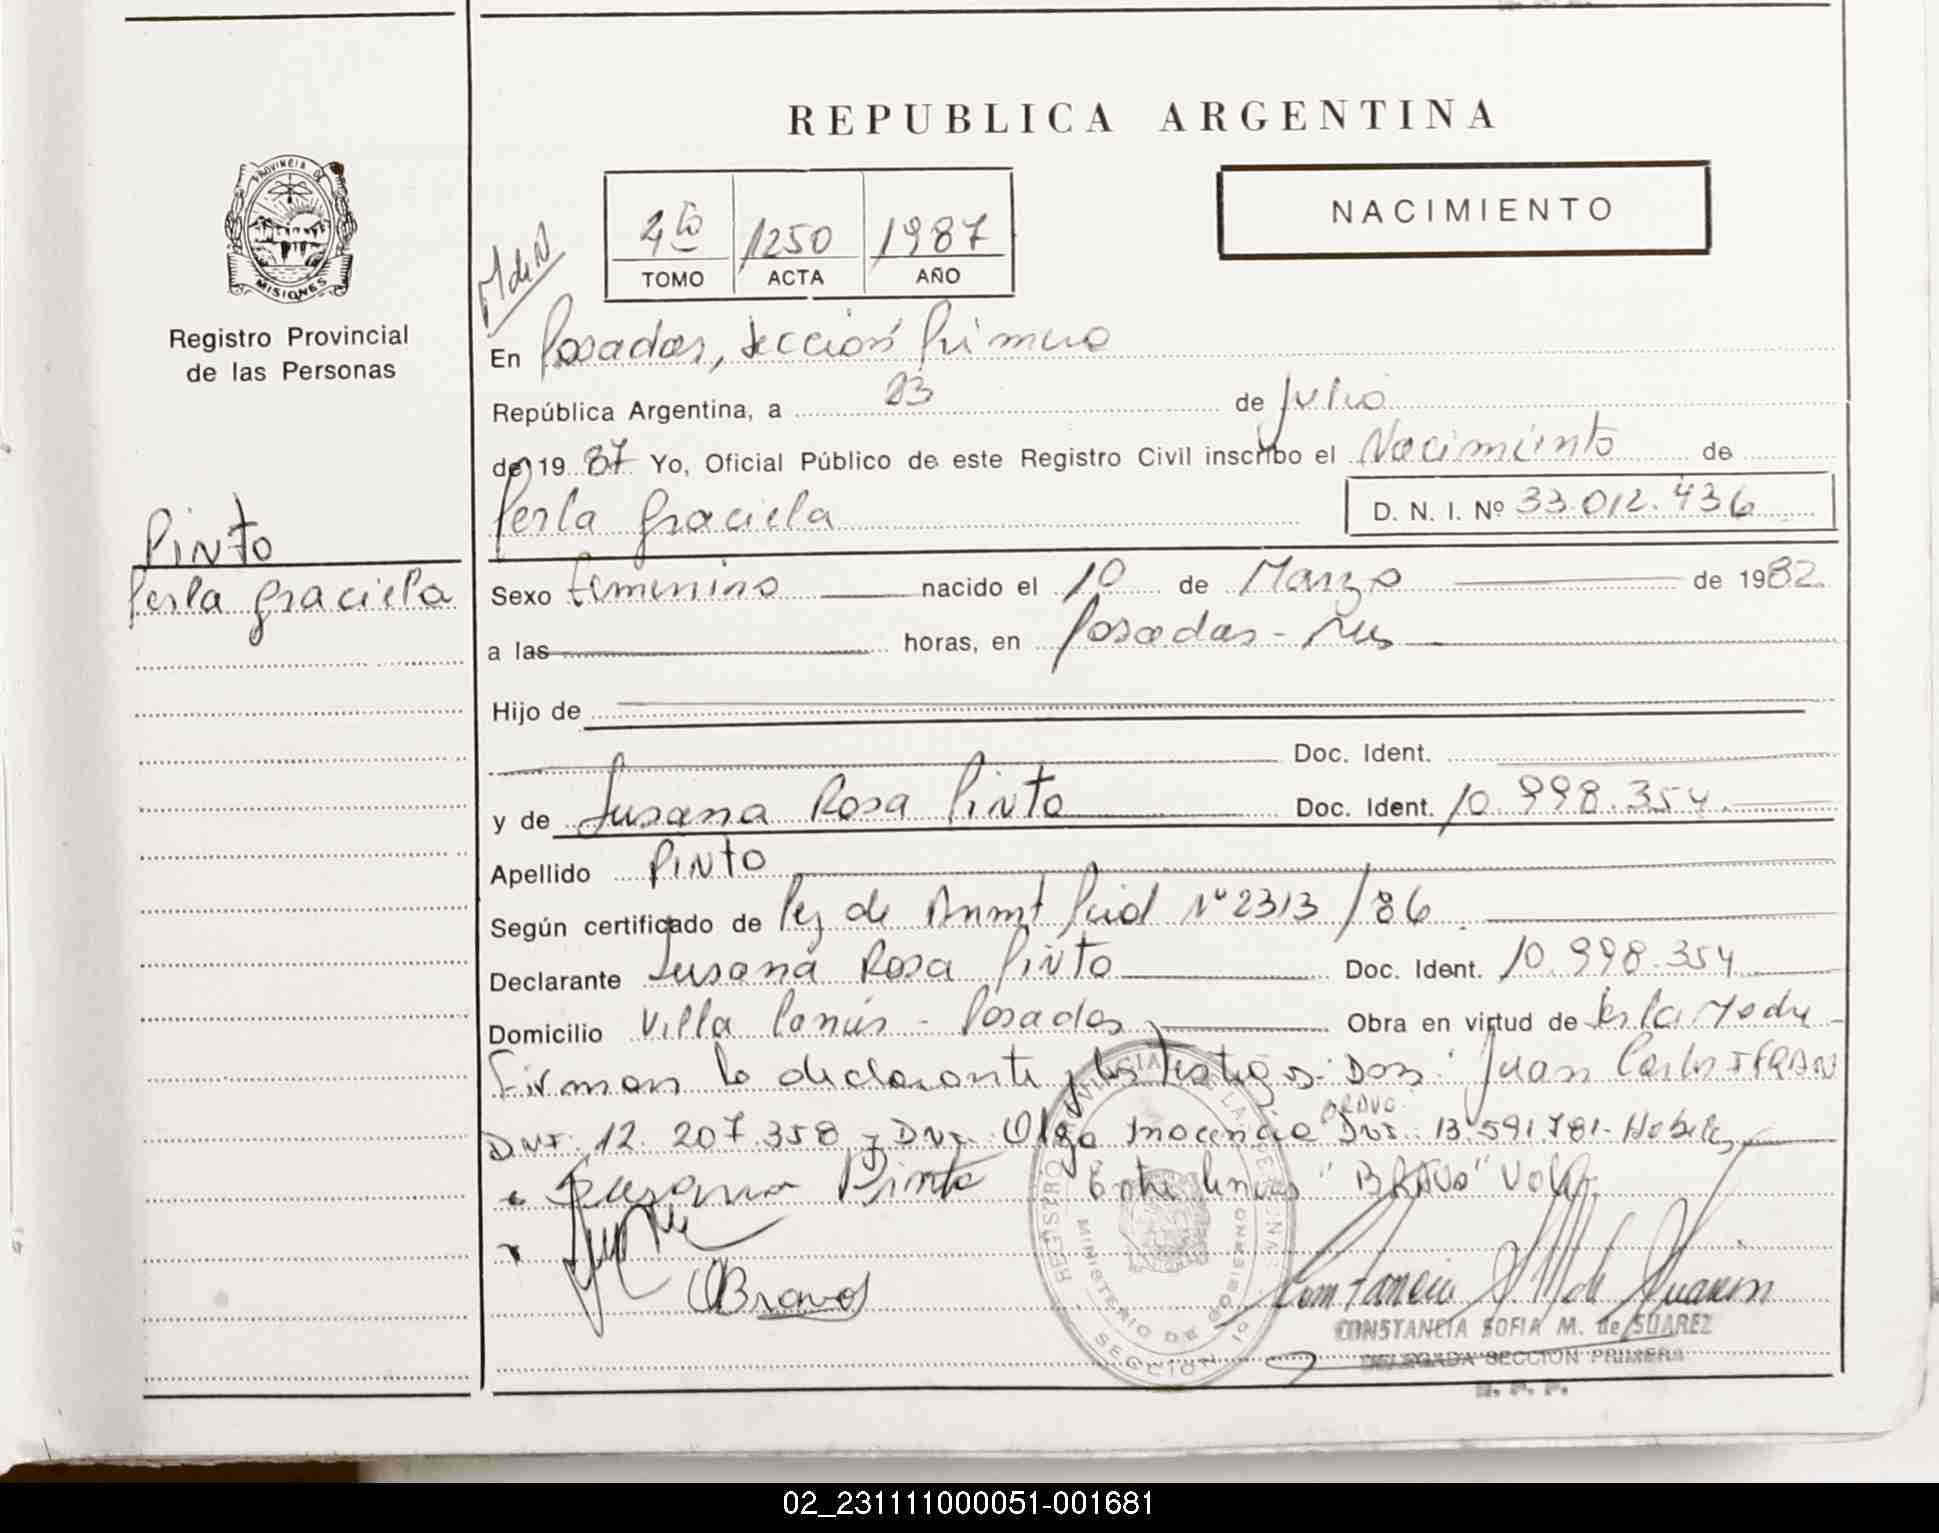 REPUBLICA ARGENTINA
NACIMIENTO
4to 1250 1987
TOMO ACTA AÑO
M de N
PROVINCIA DE MISIONES
Registro Provincial
de las Personas
PINTO
Perla Graciela
En Posadas, Sección Primera
República Argentina, a 23 de Julio
de 19 87 Yo, Oficial Público de este Registro Civil inscribo el Nacimiento de
Perla Graciela D. N. I. Nº 33.012.436
Sexo femenino nacido el 10 de Marzo de 1982
a las horas, en Posadas - Mis
Hijo de
Doc. Ident.
y de Susana Rosa Pinto Doc. Ident. 10.998.354
Apellido PINTO
Según certificado de Nº 2313/86
Declarante Susana Rosa Pinto Doc. Ident. 10.998.354
Domicilio Villa Lanús - Posadas Obra en virtud de ser la Madre -
Firman la declarante y los testigos: Don Juan Carlos
DNI: 12.207.358 y Dña. Olga Inocencia BRAVO DNI: 13.591.781 - Hábiles
Susana Pinto Entre lineas "BRAVO" Vale
OBravo
REGISTRO PROVINCIAL DE LAS PERSONAS
MINISTERIO DE GOBIERNO
SECCION 1º
Constancia S M de Suarez
CONSTANCIA SOFIA M. de SUAREZ
DELEGADA SECCION PRIMERA
R. P. P.
02_231111000051-001681